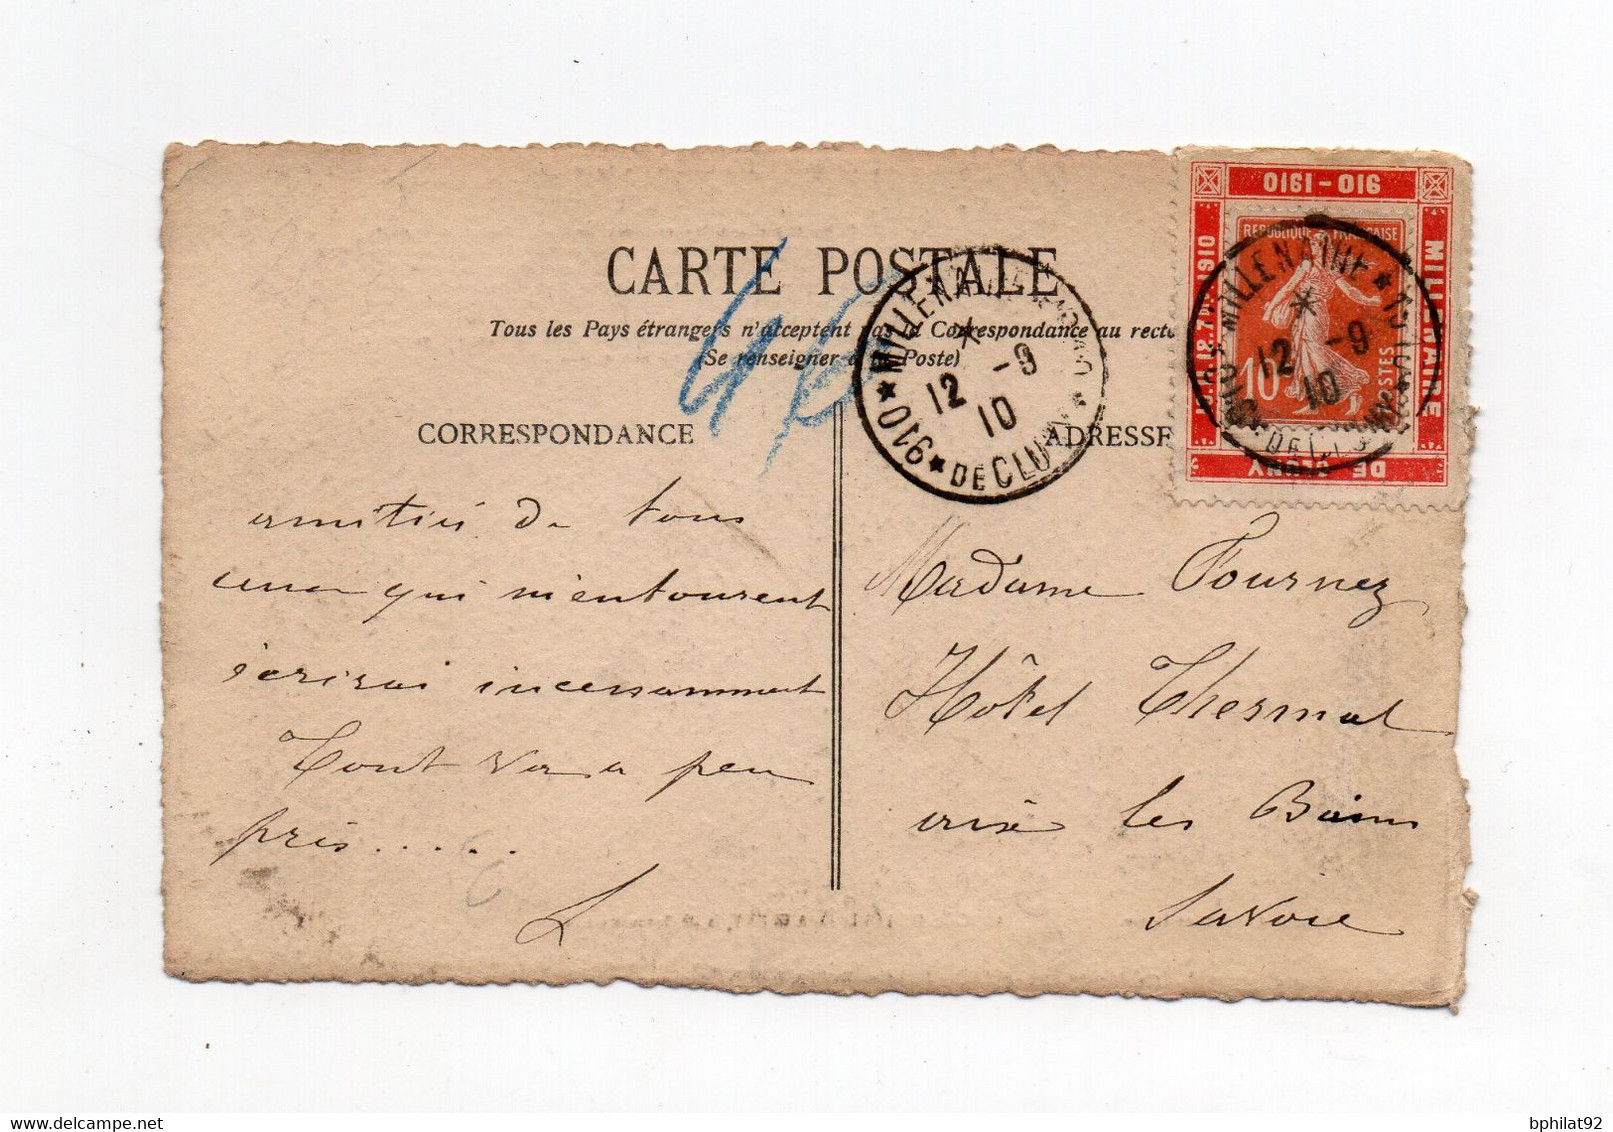 CARTE POSTALE
Tous les Pays étrangers n'acceptent pas la Correspondance au recto
(Se renseigner à la Poste)
CORRESPONDANCE
ADRESSE
40
MILLENAIRE
DE CLUNY
910
12 -9
10
910-1910
MILLENAIRE
DE CLUNY
REPUBLIQUE FRANÇAISE
10
POSTES
MILLENAIRE
12 -9
10
DE CLUNY
amitiés de tous
ceux qui m'entourent
écrirai incessamment
Tout va a peu
près.....
L
Madame Fournez
Hôtel Thermal
aix les Bains
Savoie
bphilat92